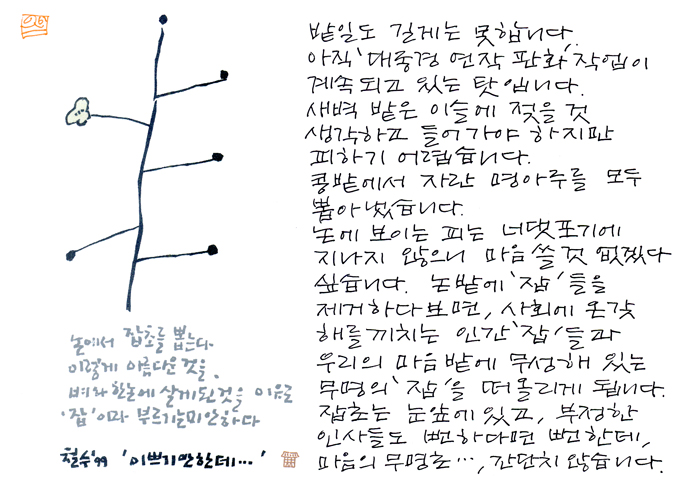 논에서 잡초를 뽑는다.
이렇게 아름다운 것을.
벼와 한논에 살게된것을 이유로
'잡'이라 부르기는 미안하다
철수 '99 '이쁘기만한데…'
밭일도 길게는 못합니다.
아직 '대종경 연작 판화' 작업이
계속되고 있는 탓입니다.
새벽 밭은 이슬에 젖을 것
생각하고 들어가야 하지만
피하기 어렵습니다.
콩밭에서 자란 명아주를 모두
뽑아 냈습니다.
논에 보이는 피는 너댓포기에
지나지 않으니 마음 쓸 것 없겠다
싶습니다. 논밭에 '잡'들을
제거하다 보면, 사회에 온갖
해를 끼치는 인간 '잡'들과
우리의 마음 밭에 무성해 있는
무명의 '잡'을 떠올리게 됩니다.
잡초는 눈앞에 있고, 부정한
인사들도 뻔하다면 뻔한데,
마음의 무명초…, 간단치 않습니다.